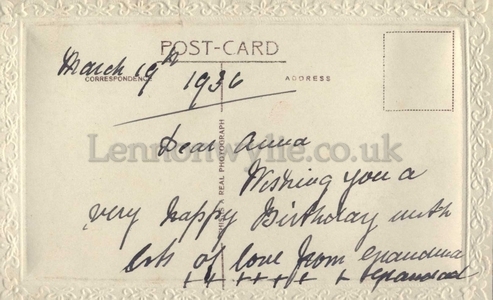 POST-CARD
March 19th
CORRESPONDENCE
1936
ADDRESS
Dear Anna
Lennonwylie.co.uk
THIS IS A REAL PHOTOGRAPH
Wishing you a
very happy Birthday with
lots of love from Grandma
+ + + + + + + Grandad